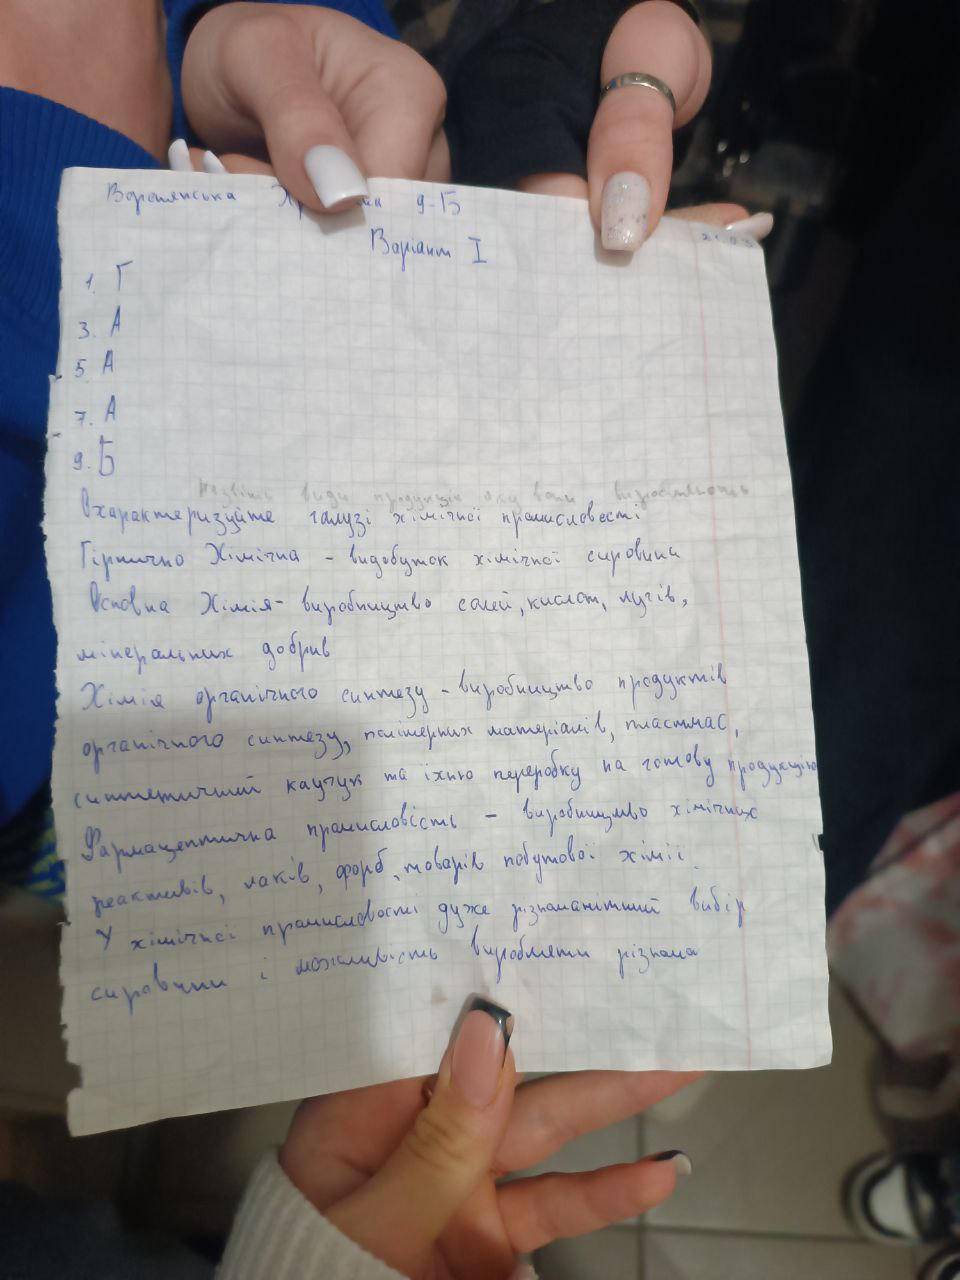 9-Б
Варіант I
21.03
1. Г
3. А
5. А
7. А
9. Б
Назвіть види продукції яку вони виробляють
Охарактеризуйте галузі хімічної промисловості
Гірничо Хімічна - видобуток хімічної сировина
Основна Хімія - виробництво солей, кислот, лугів,
мінеральних добрив
Хімія органічного синтезу - виробництво продуктів
органічного синтезу, полімерних матеріалів, пластмас,
синтетичний каучук та їхню переробку на готову продукцію
Фармацептична промисловість - виробництво хімічних
реактивів, лаків, форб, товарів побутової хімії.
У хімічної промисловості дуже різноманітний вибір
сировини і можливість виробляти різнома